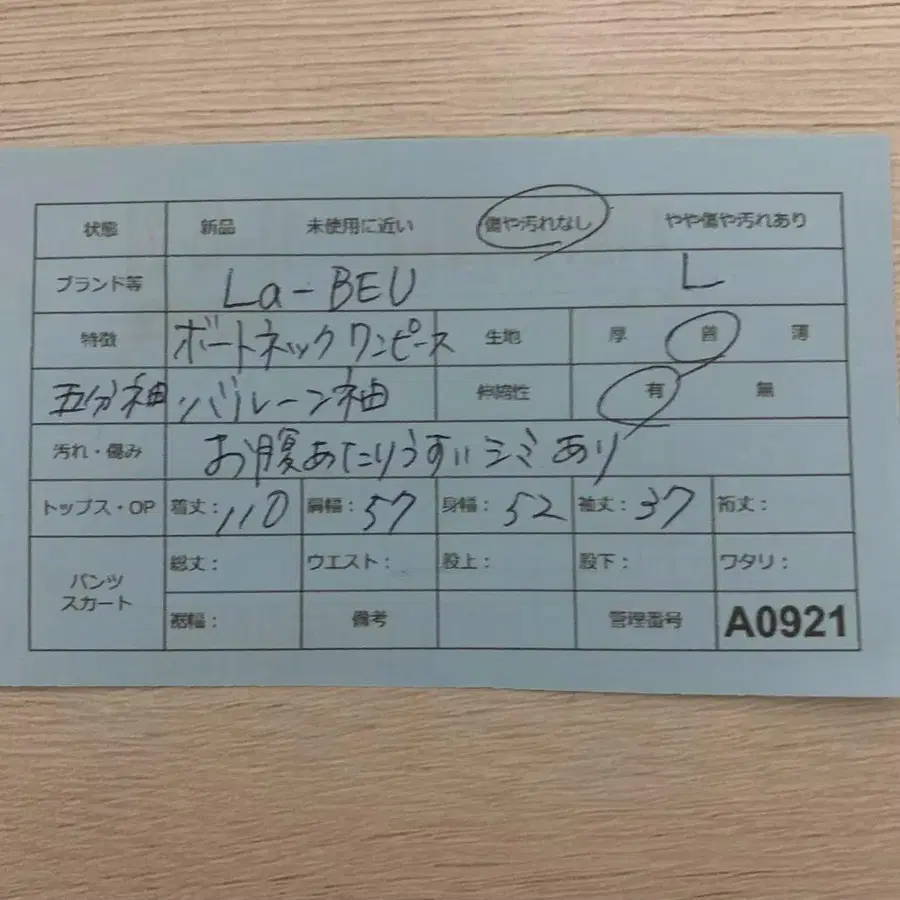 状態 新品 未使用に近い 傷や汚れなし やや傷や汚れあり
ブランド等 La-BEU L
特徴 ボートネックワンピース 生地 厚 普 薄
五分袖 バルーン袖 伸縮性 有 無
汚れ・傷み お腹あたりうすいシミあり
トップス・OP 着丈:110 肩幅:57 身幅:52 袖丈:37 裄丈:
パンツ 総丈: ウエスト: 股上: 股下: ワタリ:
スカート
裾幅: 備考 管理番号 A0921